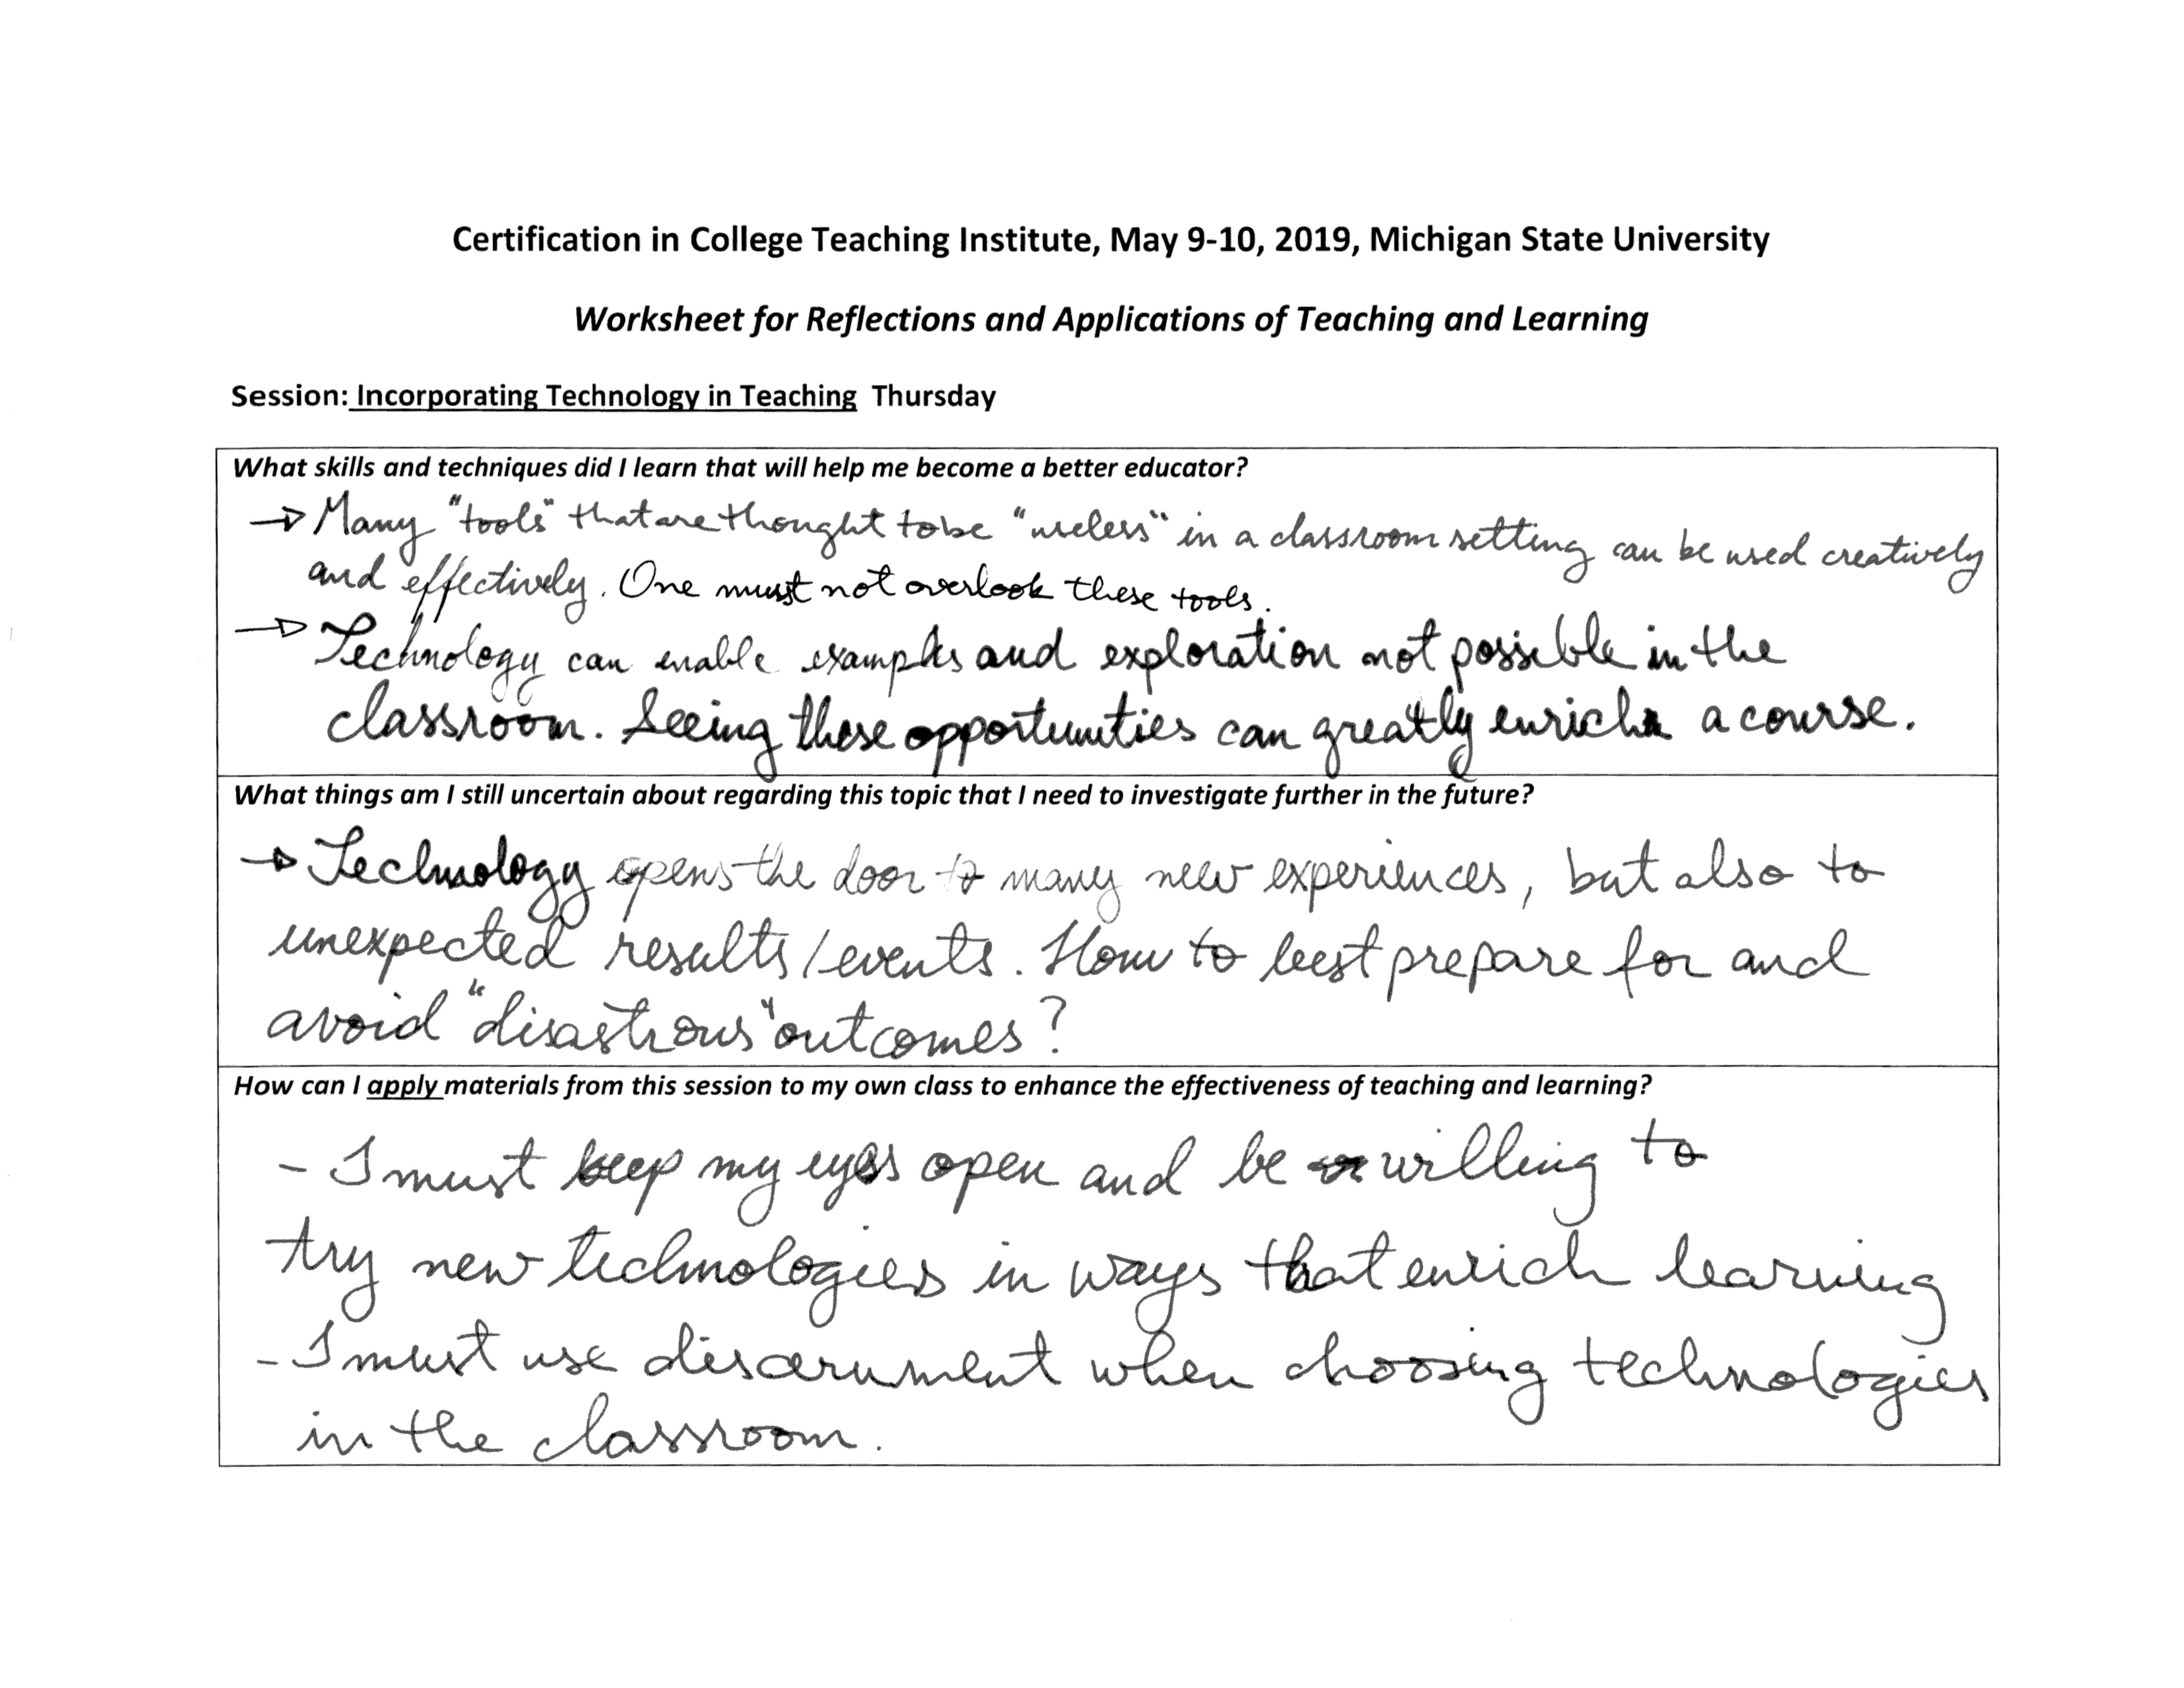 Certification in College Teaching Institute, May 9-10, 2019, Michigan State University
Worksheet for Reflections and Applications of Teaching and Learning
Session: Incorporating Technology in Teaching Thursday
What skills and techniques did I learn that will help me become a better educator?
→ Many "tools" that are thought to be "useless" in a classroom setting can be used creatively
and effectively. One must not overlook these tools.
→ Technology can enable examples and exploration not possible in the
classroom. Seeing these opportunities can greatly enrich a course.
What things am I still uncertain about regarding this topic that I need to investigate further in the future?
→ Technology opens the door to many new experiences, but also to
unexpected results/events. How to best prepare for and
avoid "disastrous" outcomes?
How can I apply materials from this session to my own class to enhance the effectiveness of teaching and learning?
- I must keep my eyes open and be willing to
try new technologies in ways that enrich learning
- I must use discernment when choosing technologies
in the classroom.